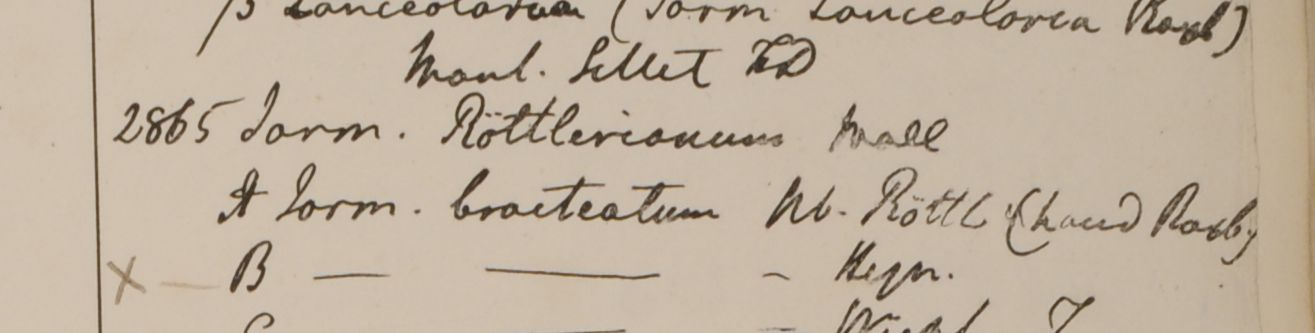 β Lanceolaria (Jasm Lanceolaria Roxb)
Mont. Sillet FD
2865 Jasm. Röttlerianum Wall
A Jasm. bracteatum Hb. Röttl (haud Roxb)
X — B — — - Heyn.